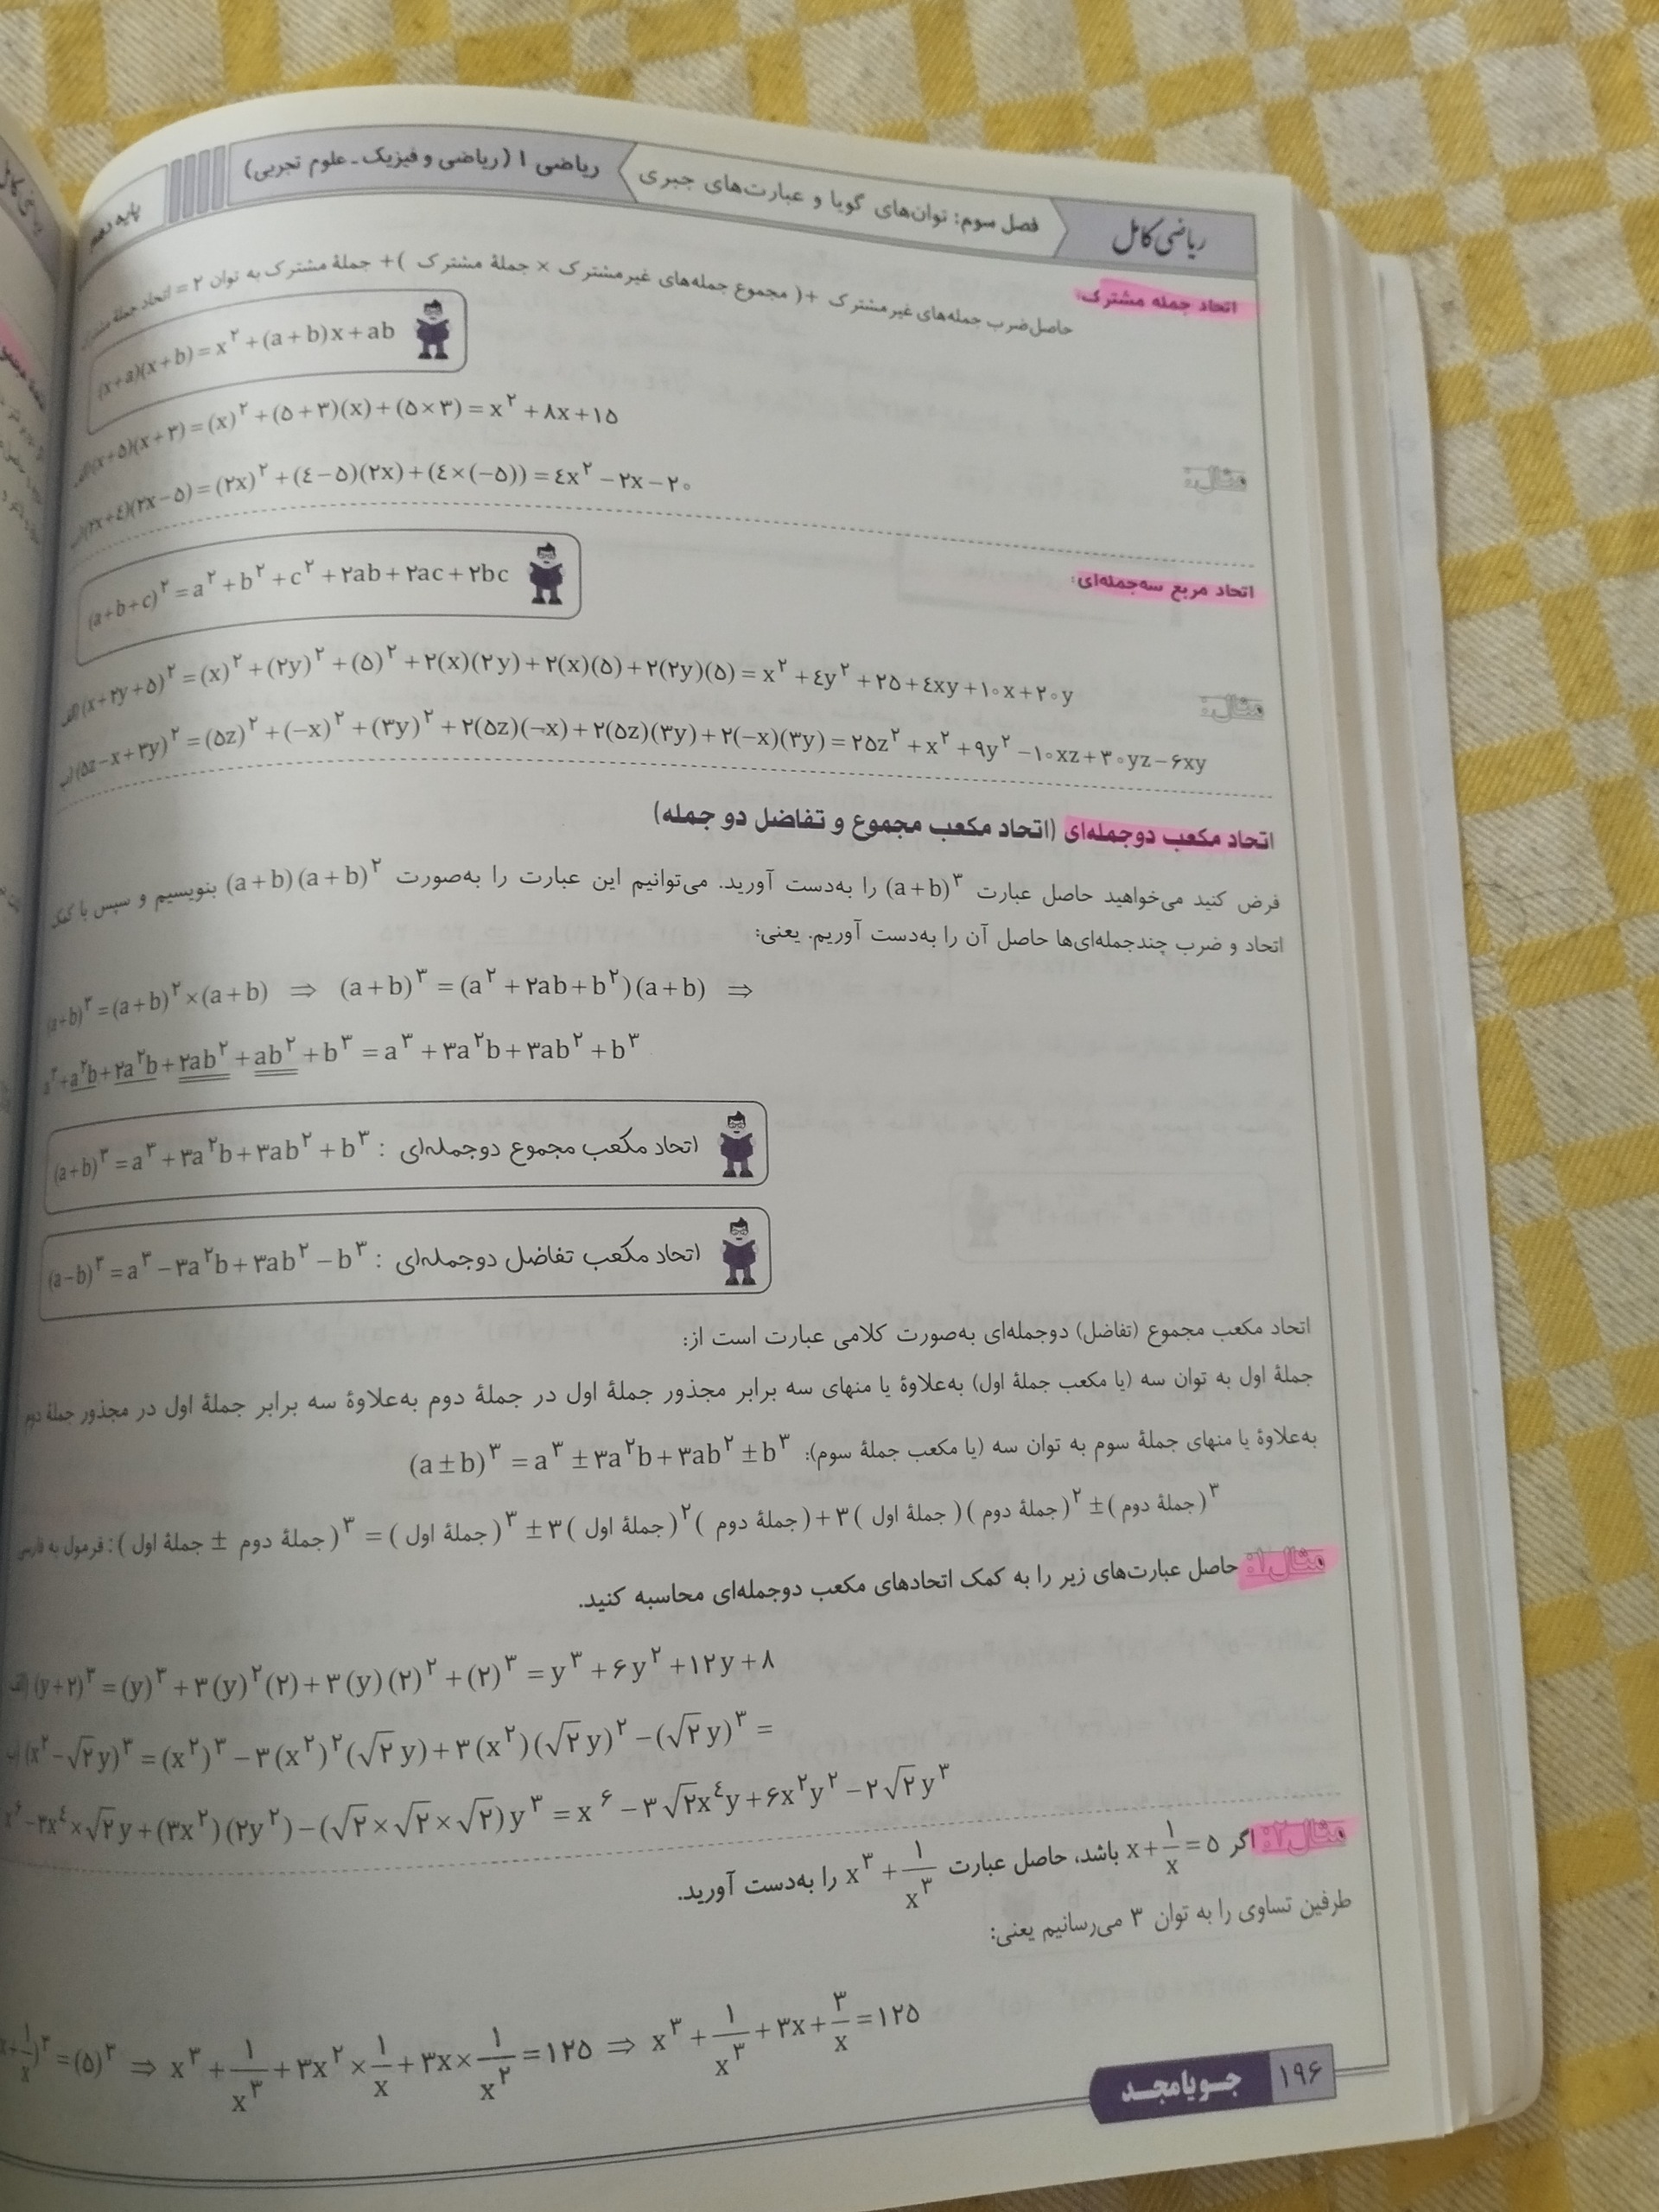 ریاضی کامل
فصل سوم: توان‌های گویا و عبارت‌های جبری
ریاضی ۱ (ریاضی و فیزیک ـ علوم تجربی)
پایه دهم
اتحاد جمله مشترک:
حاصل‌ضرب جمله‌های غیرمشترک + (مجموع جمله‌های غیرمشترک × جملهٔ مشترک) + جملهٔ مشترک به توان ۲ = اتحاد جملهٔ مشترک
(x+a)(x+b) = x^۲ + (a+b)x + ab
مثال:
الف) (x+۵)(x+۳) = (x)^۲ + (۵+۳)(x) + (۵×۳) = x^۲ + ۸x + ۱۵
ب) (۲x+٤)(۲x−۵) = (۲x)^۲ + (٤−۵)(۲x) + (٤×(−۵)) = ٤x^۲ − ۲x − ۲۰
اتحاد مربع سه‌جمله‌ای:
(a+b+c)^۲ = a^۲ + b^۲ + c^۲ + ۲ab + ۲ac + ۲bc
مثال:
الف) (x+۲y+۵)^۲ = (x)^۲ + (۲y)^۲ + (۵)^۲ + ۲(x)(۲y) + ۲(x)(۵) + ۲(۲y)(۵) = x^۲ + ٤y^۲ + ۲۵ + ٤xy + ۱۰x + ۲۰y
ب) (۵z−x+۳y)^۲ = (۵z)^۲ + (−x)^۲ + (۳y)^۲ + ۲(۵z)(−x) + ۲(۵z)(۳y) + ۲(−x)(۳y) = ۲۵z^۲ + x^۲ + ۹y^۲ − ۱۰xz + ۳۰yz − ۶xy
اتحاد مکعب دوجمله‌ای (اتحاد مکعب مجموع و تفاضل دو جمله)
فرض کنید می‌خواهید حاصل عبارت (a+b)^۳ را به‌دست آورید. می‌توانیم این عبارت را به‌صورت (a+b)(a+b)^۲ بنویسیم و سپس با کمک
اتحاد و ضرب چندجمله‌ای‌ها حاصل آن را به‌دست آوریم. یعنی:
(a+b)^۳ = (a+b)^۲ × (a+b) ⇒ (a+b)^۳ = (a^۲ + ۲ab + b^۲)(a+b) ⇒
a^۳ + a^۲b + ۲a^۲b + ۲ab^۲ + ab^۲ + b^۳ = a^۳ + ۳a^۲b + ۳ab^۲ + b^۳
اتحاد مکعب مجموع دوجمله‌ای : (a+b)^۳ = a^۳ + ۳a^۲b + ۳ab^۲ + b^۳
اتحاد مکعب تفاضل دوجمله‌ای : (a−b)^۳ = a^۳ − ۳a^۲b + ۳ab^۲ − b^۳
اتحاد مکعب مجموع (تفاضل) دوجمله‌ای به‌صورت کلامی عبارت است از:
جملهٔ اول به توان سه (یا مکعب جملهٔ اول) به‌علاوهٔ یا منهای سه برابر مجذور جملهٔ اول در جملهٔ دوم به‌علاوهٔ سه برابر جملهٔ اول در مجذور جملهٔ دوم
به‌علاوهٔ یا منهای جملهٔ سوم به توان سه (یا مکعب جملهٔ سوم): (a±b)^۳ = a^۳ ± ۳a^۲b + ۳ab^۲ ± b^۳
فرمول به فارسی: (جملهٔ دوم ± جملهٔ اول)^۳ = (جملهٔ اول)^۳ ± ۳(جملهٔ اول)^۲(جملهٔ دوم) + ۳(جملهٔ اول)(جملهٔ دوم)^۲ ± (جملهٔ دوم)^۳
مثال۱: حاصل عبارت‌های زیر را به کمک اتحادهای مکعب دوجمله‌ای محاسبه کنید.
الف) (y+۲)^۳ = (y)^۳ + ۳(y)^۲(۲) + ۳(y)(۲)^۲ + (۲)^۳ = y^۳ + ۶y^۲ + ۱۲y + ۸
ب) (x^۲ − √۲y)^۳ = (x^۲)^۳ − ۳(x^۲)^۲(√۲y) + ۳(x^۲)(√۲y)^۲ − (√۲y)^۳ =
x^۶ − ۳x^٤ × √۲y + (۳x^۲)(۲y^۲) − (√۲×√۲×√۲)y^۳ = x^۶ − ۳√۲x^٤y + ۶x^۲y^۲ − ۲√۲y^۳
مثال۲: اگر x + ۱/x = ۵ باشد، حاصل عبارت x^۳ + ۱/x^۳ را به‌دست آورید.
طرفین تساوی را به توان ۳ می‌رسانیم یعنی:
(x + ۱/x)^۳ = (۵)^۳ ⇒ x^۳ + ۱/x^۳ + ۳x^۲ × ۱/x + ۳x × ۱/x^۲ = ۱۲۵ ⇒ x^۳ + ۱/x^۳ + ۳x + ۳/x = ۱۲۵
۱۹۶
جـویامجـد